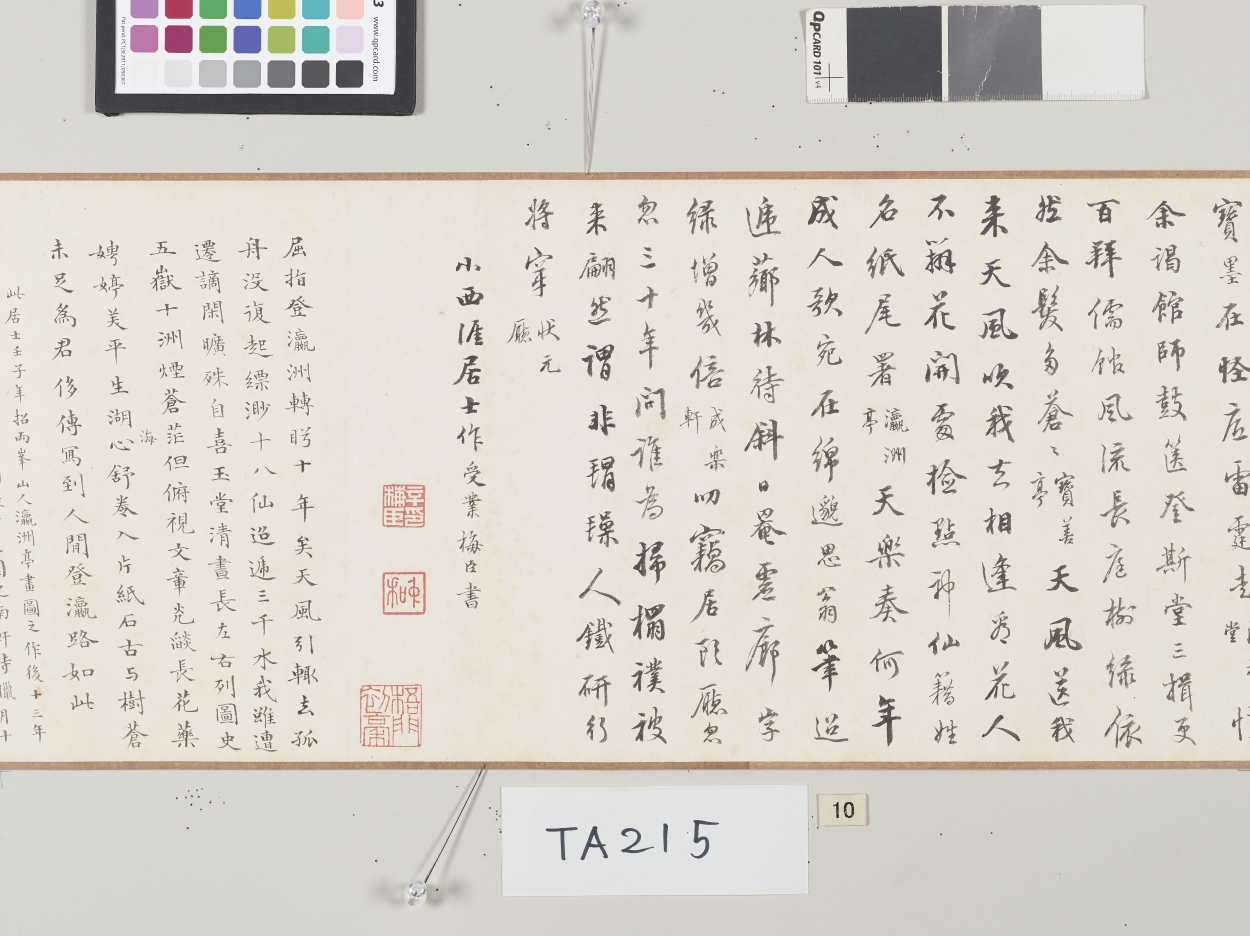 寶墨在怪底雷霆走
余謁館師鼓篋登斯堂三揖更
百拜儒館風流長庭樹綠依
然余髮多蒼〻寶善亭天風送我
来天風吹我去相逢看花人
不辨花開處檢點神仙籍姓
名紙尾署瀛洲亭天樂奏何年
成人歌宛在綿邈思翁筆迢
遞薌林待斜日罨畫廊字
綠增幾倍成樂軒叨竊居頭廳忽
忽三十年問誰為掃榻襆被
来翩然謂非瑁璪人鐵研行
將穿狀元廳
小西涯居士作受業梅臣書
屈指登瀛洲轉眄十年矣天風引輙去孤
舟没復起縹渺十八仙迢遞三千水我雖遭
遷謫閑曠殊自喜玉堂清晝長左右列圖史
五嶽十洲煙蒼茫但俯視文章光燄長花藥
海
娉婷美平生湖心舒卷入片紙石古与樹蒼
未足為君侈傳寫到人間登瀛路如此
此居士壬子年招兩峯山人瀛洲亭畫圖之作後十三年
TA215
10
QPCARD 101 v4
www.qpcard.com